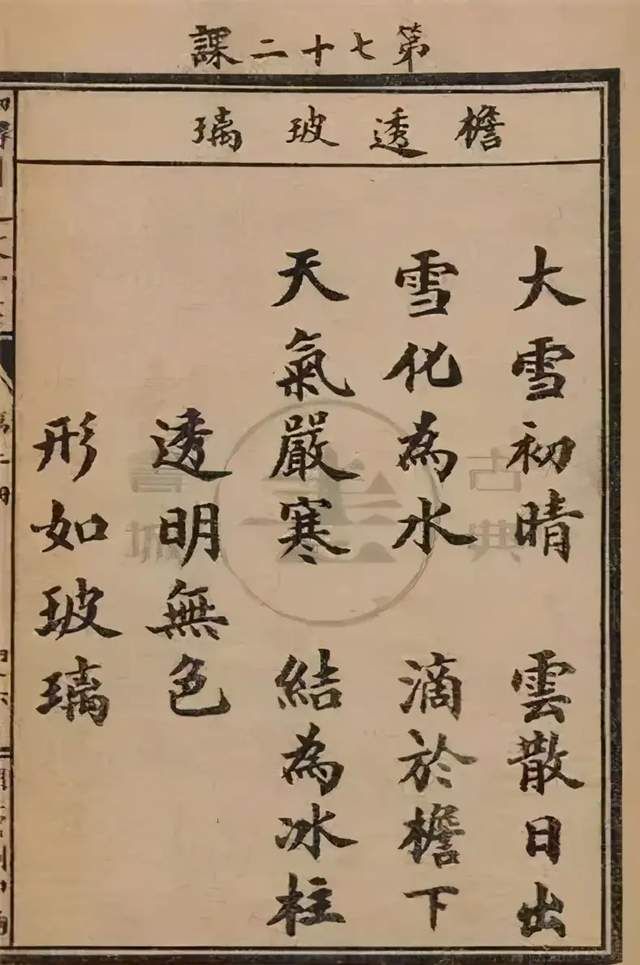 第七十二課
檐透玻璃
大雪初晴 雲散日出
雪化為水 滴於檐下
天氣嚴寒 結為冰柱
透明無色
形如玻璃
古典書城